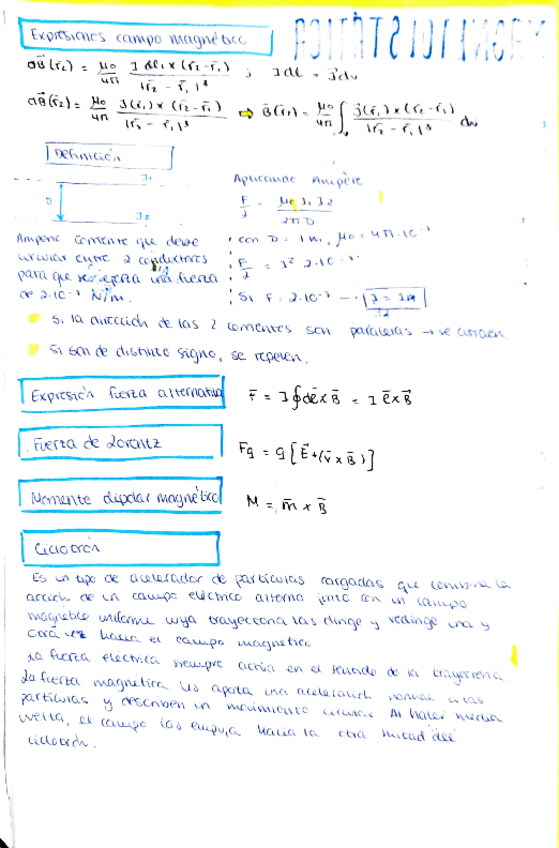 MAGNETOSTÁTICA
Expresiones campo magnético
dB⃗(r̄₂) = μ₀/4π I dl₁ × (r̄₂ - r̄₁) / |r̄₂ - r̄₁|³ ; I dl = J̄ dv
dB⃗(r̄₂) = μ₀/4π J(r̄₁) × (r̄₂ - r̄₁) / |r̄₃ - r̄₁|³ ⇒ B̄(r₂) = μ₀/4π ∫ᵥ J̄(r̄₁) × (r̄₂ - r̄₁) / |r̄₂ - r̄₁|³ dv
Definición
I₁ Aplicando Ampère
D F/l = μ₀ I₁ I₂ / 2π D
I₂
Ampère corriente que debe con D = 1m, μ₀ = 4π·10⁻⁷
circular entre 2 conductores F/l = I² 2·10⁻⁷
para que se ejerza una fuerza
de 2·10⁻⁷ N/m. Si F = 2·10⁻⁷ → I = 1A
Si la dirección de las 2 corrientes son paralelas → se atraen
Si son de distinto signo, se repelen.
Expresión fuerza alternativa F̄ = I ∮ dl̄ × B̄ = I l̄ × B̄
Fuerza de Lorentz Fq = q [E⃗ + (v̄ × B̄)]
Momento dipolar magnético M = m̄ × B̄
Ciclotrón
Es un tipo de acelerador de partículas cargadas que combina la
acción de un campo eléctrico alterno junto con un campo
magnético uniforme cuya trayectoria las dirige y redirige una y
otra vez hacia el campo magnético
La fuerza eléctrica siempre actúa en el sentido de la trayectoria
La fuerza magnética les aporta una aceleración normal a las
partículas y describen un movimiento circular. Al hacer media
vuelta, el campo las empuja hacia la otra mitad del
ciclotrón.